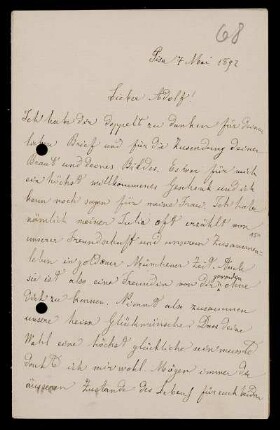 68
Pisa 7 Mai 1892
Lieber Adolf
Ich habe dir doppelt zu danken für deinen
lieben Brief und für die Zusendung deiner
Braut und deines Bildes. Es war für mich
ein höchst willkommenes Geschenk und ich
kann noch sagen für meine Frau. Ich habe
nämlich meiner Julia oft erzählt von
unserer Freundschaft und unserem Zusammen-
leben in goldener Münchener Zeit. Auch
sie ist also eine Freundin von dir geworden ohne
dich zu kennen. Nimmt also zusammen
unsere herzen Glückwünsche! Dass deine
Wahl eine höchst glückliche sein musste
denk ich mir wohl. Mögen immer die
äusseren Zustände des Lebens für euch beiden